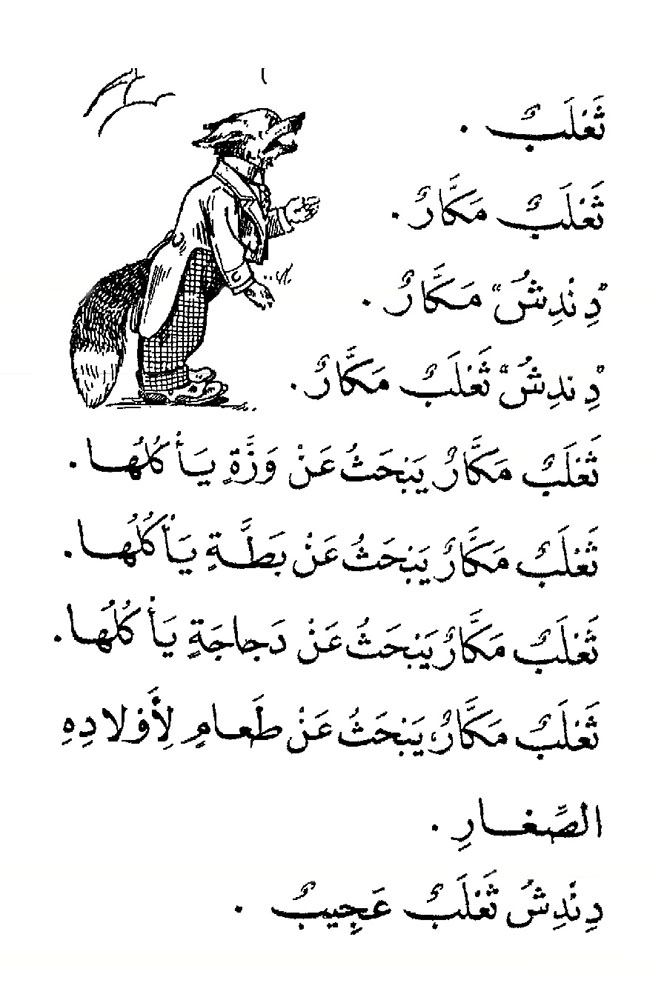 ثَعْلَبٌ .
ثَعْلَبٌ مَكَّارٌ .
"دِنْدِشُ" مَكَّارٌ .
"دِندِشُ" ثَعْلَبٌ مَكَّارٌ .
ثَعْلَبٌ مَكَّارٌ يَبْحَثُ عَنْ وَزَّةٍ يَأْكُلُها .
ثَعْلَبٌ مَكَّارٌ يَبْحَثُ عَنْ بَطَّةٍ يَأْكُلُها .
ثَعْلَبٌ مَكَّارٌ يَبْحَثُ عَنْ دَجاجَةٍ يَأْكُلُها .
ثَعْلَبٌ مَكَّارٌ، يَبْحَثُ عَنْ طَعامٍ لِأَوْلادِهِ
الصِّغارِ .
دِنْدِشُ ثَعْلَبٌ عَجِيبٌ .